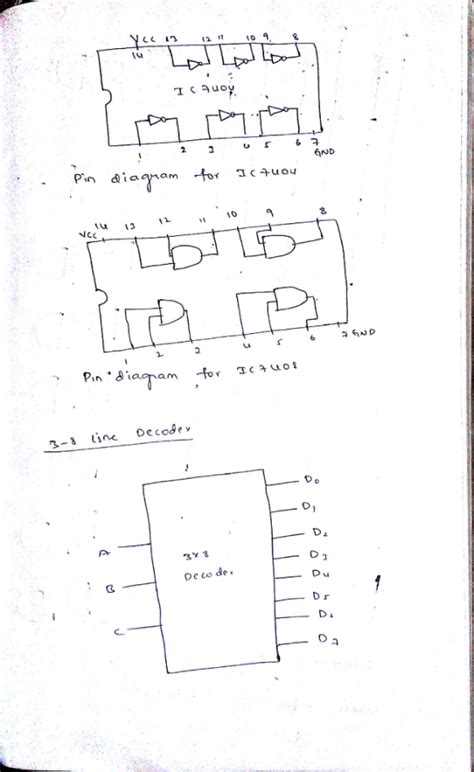 Vcc 13 12 11 10 9 8
14
IC7404
1 2 3 4 5 6 7
GND
Pin diagram for IC7404
Vcc 14 13 12 11 10 9 8
1 2 3 4 5 6 7 GND
Pin diagram for IC7408
3-8 line Decoder
D0
D1
D2
A 3x8 D3
Decoder D4
B D5
D6
C D7